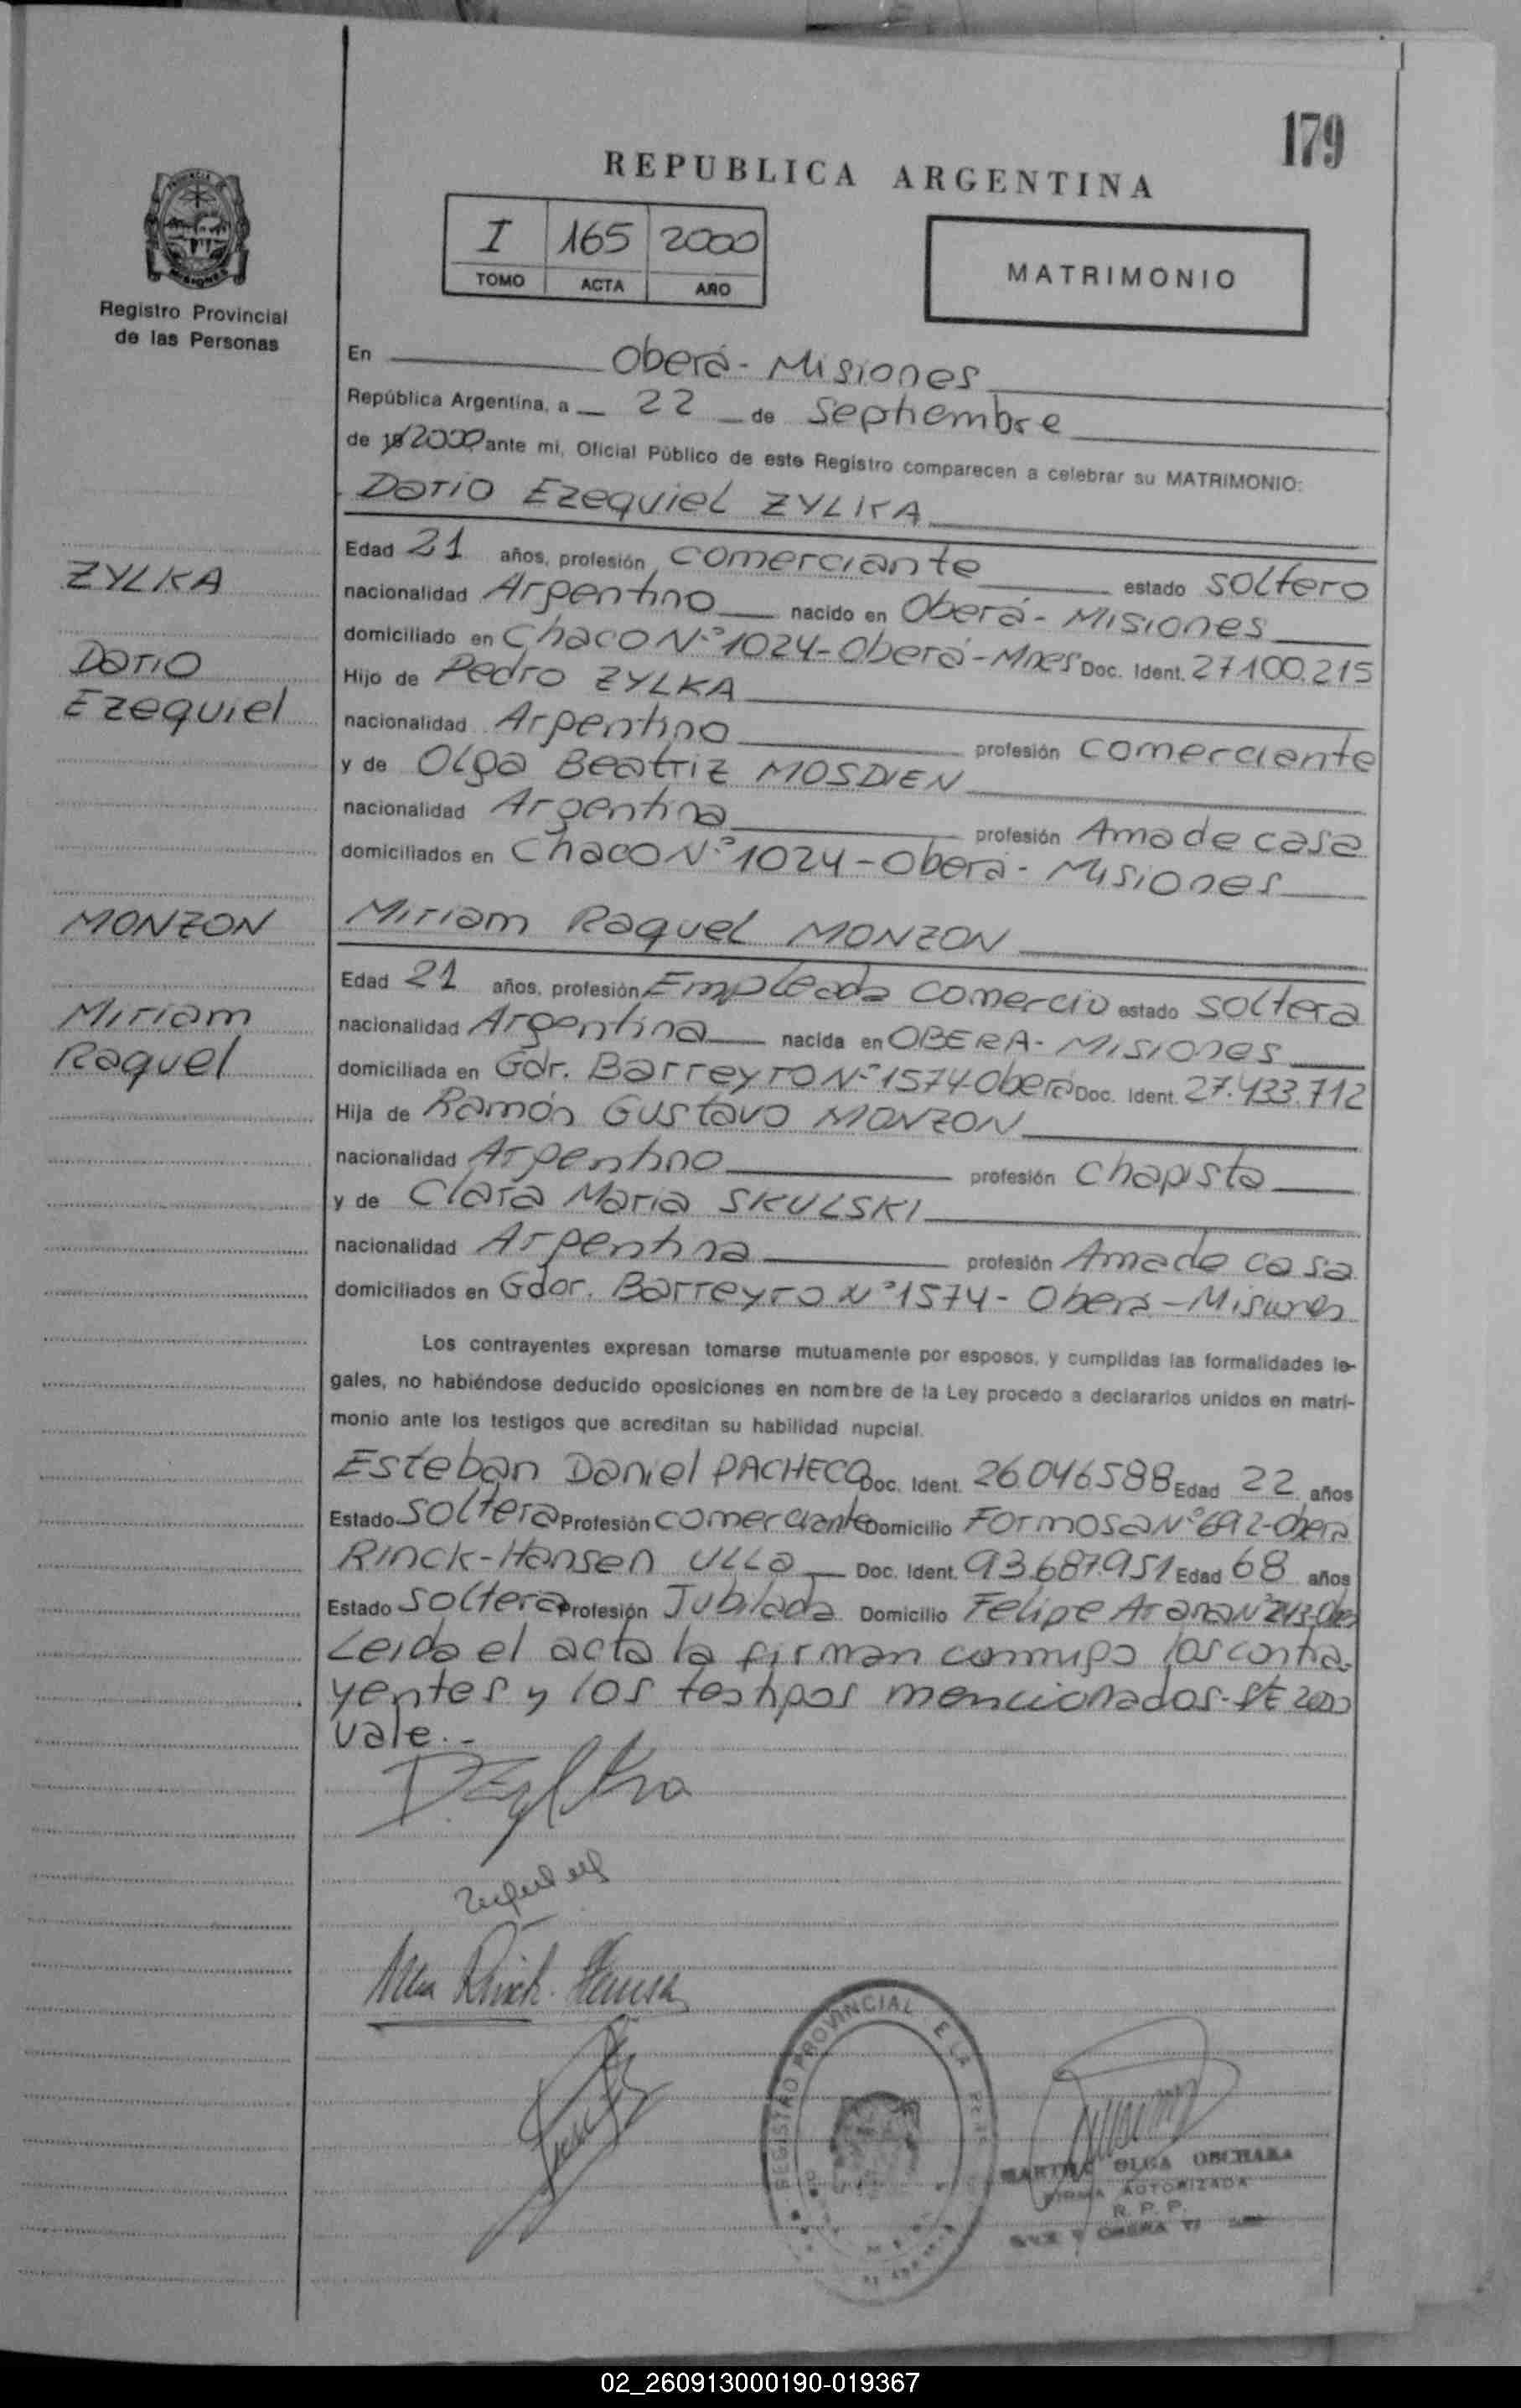 179
REPUBLICA ARGENTINA
I 165 2000
TOMO ACTA AÑO
MATRIMONIO
Registro Provincial
de las Personas
En Oberá - Misiones
República Argentina, a 22 de Septiembre
de 19 2000 ante mi, Oficial Público de este Registro comparecen a celebrar su MATRIMONIO:
Dario Ezequiel ZYLKA
Edad 21 años, profesión comerciante estado soltero
ZYLKA
nacionalidad Argentino nacido en Oberá - Misiones
domiciliado en Chaco N° 1024 - Oberá - Mnes Doc. Ident. 27.100.215
Dario
Hijo de Pedro ZYLKA
Ezequiel
nacionalidad Argentino profesión comerciante
y de Olga Beatriz MOSDIEN
nacionalidad Argentina profesión Ama de casa
domiciliados en Chaco N° 1024 - Oberá - Misiones
MONZON
Miriam Raquel MONZON
Edad 21 años, profesión Empleada Comercio estado soltera
Miriam
nacionalidad Argentina nacida en OBERA - Misiones
Raquel
domiciliada en Gdr. Barreyro N° 1574 Oberá Doc. Ident. 27.433.712
Hija de Ramón Gustavo MONZON
nacionalidad Argentino profesión Chapista
y de Clara Maria SKULSKI
nacionalidad Argentina profesión Ama de casa
domiciliados en Gdor. Barreyro N° 1574 - Oberá - Misiones
Los contrayentes expresan tomarse mutuamente por esposos, y cumplidas las formalidades le-
gales, no habiéndose deducido oposiciones en nombre de la Ley procedo a declararlos unidos en matri-
monio ante los testigos que acreditan su habilidad nupcial.
Esteban Daniel PACHECO Doc. Ident. 26.046.588 Edad 22 años
Estado soltera Profesión comerciante Domicilio Formosa N° 692 - Oberá
Rinck-Hansen Ulla Doc. Ident. 93.687.951 Edad 68 años
Estado soltera Profesión Jubilada Domicilio Felipe
Leida el acta la firman conmigo los contra-
yentes y los testigos mencionados - S/E 2000
vale.-
D. Zylka
Ulla Rinck-Hansen
REGISTRO PROVINCIAL
MARTHA OLGA
FIRMA AUTORIZADA
R. P. P.
02_260913000190-019367